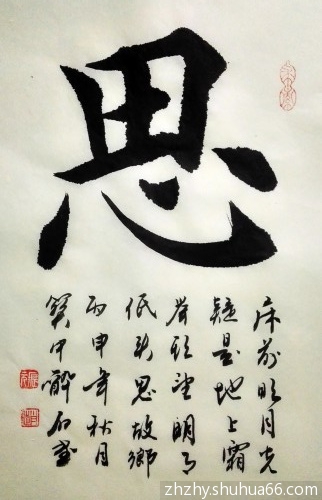 思
床前明月光
疑是地上霜
举头望明月
低头思故乡
丙申年秋月
zhzhy.shuhua66.com